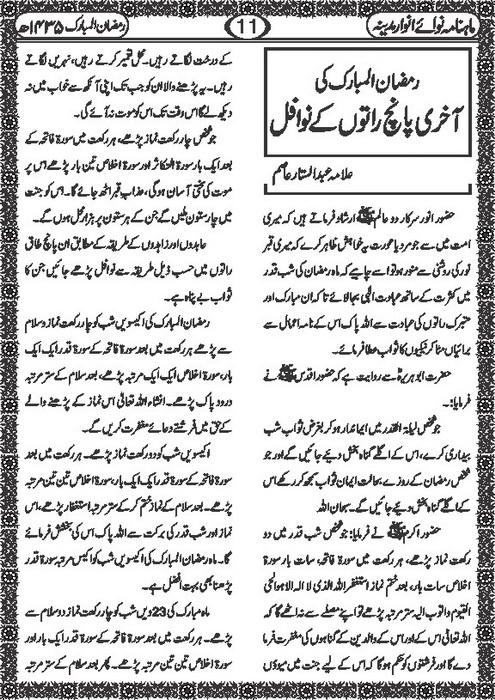 ماہنامہ نوائے انوار مدینہ
11
رمضان المبارک ۱۴۳۵ھ
رمضان المبارک کی
آخری پانچ راتوں کے نوافل
علامہ عبدالستار عاصم
حضور انور سرکار دو عالم ﷺ ارشاد فرماتے ہیں کہ میری
امت میں سے جو مرد یا عورت یہ خواہش ظاہر کرے کہ میری قبر
نور کی روشنی سے منور ہو تو اسے چاہیے کہ ماہ رمضان کی شب قدر
میں کثرت کے ساتھ عبادت الٰہی بجا لائے تاکہ ان مبارک اور
متبرک راتوں کی عبادت سے اللہ پاک اس کے نامہ اعمال سے
برائیاں مٹا کر نیکیوں کا ثواب عطا فرمائے۔
حضرت ابوہریرہؓ سے روایت ہے کہ حضور اقدس ﷺ نے
فرمایا:۔
جو شخص لیلۃ القدر میں ایماندار ہو کر بغرض ثواب شب
بیداری کرے، اس کے اگلے گناہ بخش دیئے جائیں گے اور جو
شخص رمضان کے روزے، بحالت ایمان ثواب سمجھ کر رکھے اس
کے اگلے گناہ بخش دیئے جائیں گے۔ سبحان اللہ
حضور اکرم ﷺ نے فرمایا: جو شخص شب قدر میں دو
رکعت نماز پڑھے، ہر رکعت میں سورۃ فاتحہ، سات بار سورۃ
اخلاص سات بار، بعد ختم نماز استغفر اللہ الذی لا الہ الا ہو الحی
القیوم واتوب الیہ ستر مرتبہ پڑھے تو اپنے مصلے سے نہ اٹھے گا کہ
اللہ تعالیٰ اس کے اور اس کے والدین کے گناہوں کی مغفرت فرما
دے گا اور فرشتوں کو حکم ہو گا کہ اس کے لیے جنت میں میوؤں
کے درخت لگاتے رہیں۔ محل تعمیر کرتے رہیں، نہریں لگاتے
رہیں۔ یہ پڑھنے والا ان کو جب تک اپنی آنکھ سے خواب میں نہ
دیکھ لے گا اس وقت تک اس کو موت نہ آئے گی۔
جو شخص چار رکعت نماز پڑھے، ہر رکعت میں سورۃ فاتحہ کے
بعد ایک بار سورۃ التکاثر اور سورۃ اخلاص تین بار پڑھے اس پر
موت کی سختی آسان ہو گی، عذاب قبر اٹھ جائے گا۔ اس کو جنت
میں چار ستون ملیں گے جن کے ہر ستون پر ہزار محل ہوں گے۔
عابدوں اور زاہدوں کے طریقہ کے مطابق ان پانچ طاق
راتوں میں حسب ذیل طریقہ سے نوافل پڑھے جائیں جن کا
ثواب بے پناہ ہے۔
رمضان المبارک کی اکیسویں شب کو چار رکعت نماز دو سلام
سے پڑھے ہر رکعت میں بعد سورۃ فاتحہ کے سورۃ قدر ایک ایک
بار، سورۃ اخلاص ایک ایک مرتبہ پڑھے، بعد سلام کے ستر مرتبہ
درود پاک پڑھے۔ انشاء اللہ تعالیٰ اس نماز کے پڑھنے والے
کے حق میں فرشتے دعائے مغفرت کریں گے۔
اکیسویں شب کو دو رکعت نماز پڑھے۔ ہر رکعت میں بعد
سورۃ فاتحہ کے سورۃ قدر ایک ایک بار، سورۃ اخلاص تین تین مرتبہ
پڑھے۔ بعد سلام کے نماز ختم کر کے ستر مرتبہ استغفار پڑھے، اس
نماز اور شب قدر کی برکت سے اللہ پاک، اس کی بخشش فرمائے
گا۔ ماہ رمضان المبارک کی اکیسویں شب کو اکیس مرتبہ سورۃ قدر
پڑھنا بھی بہت افضل ہے۔
ماہ مبارک کی 23ویں شب کو چار رکعت نماز دو سلام سے
پڑھے۔ ہر رکعت میں بعد سورۃ فاتحہ کے سورۃ قدر ایک بار اور
سورۃ اخلاص تین تین مرتبہ پڑھے۔ پھر بعد سلام کے ستر مرتبہ